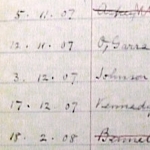 5. 11. 07
12. 11. 07 O'Garra
3. 12. 07 Johnson
17. 12. 07 Kennedy
18. 2. 08 Bennet